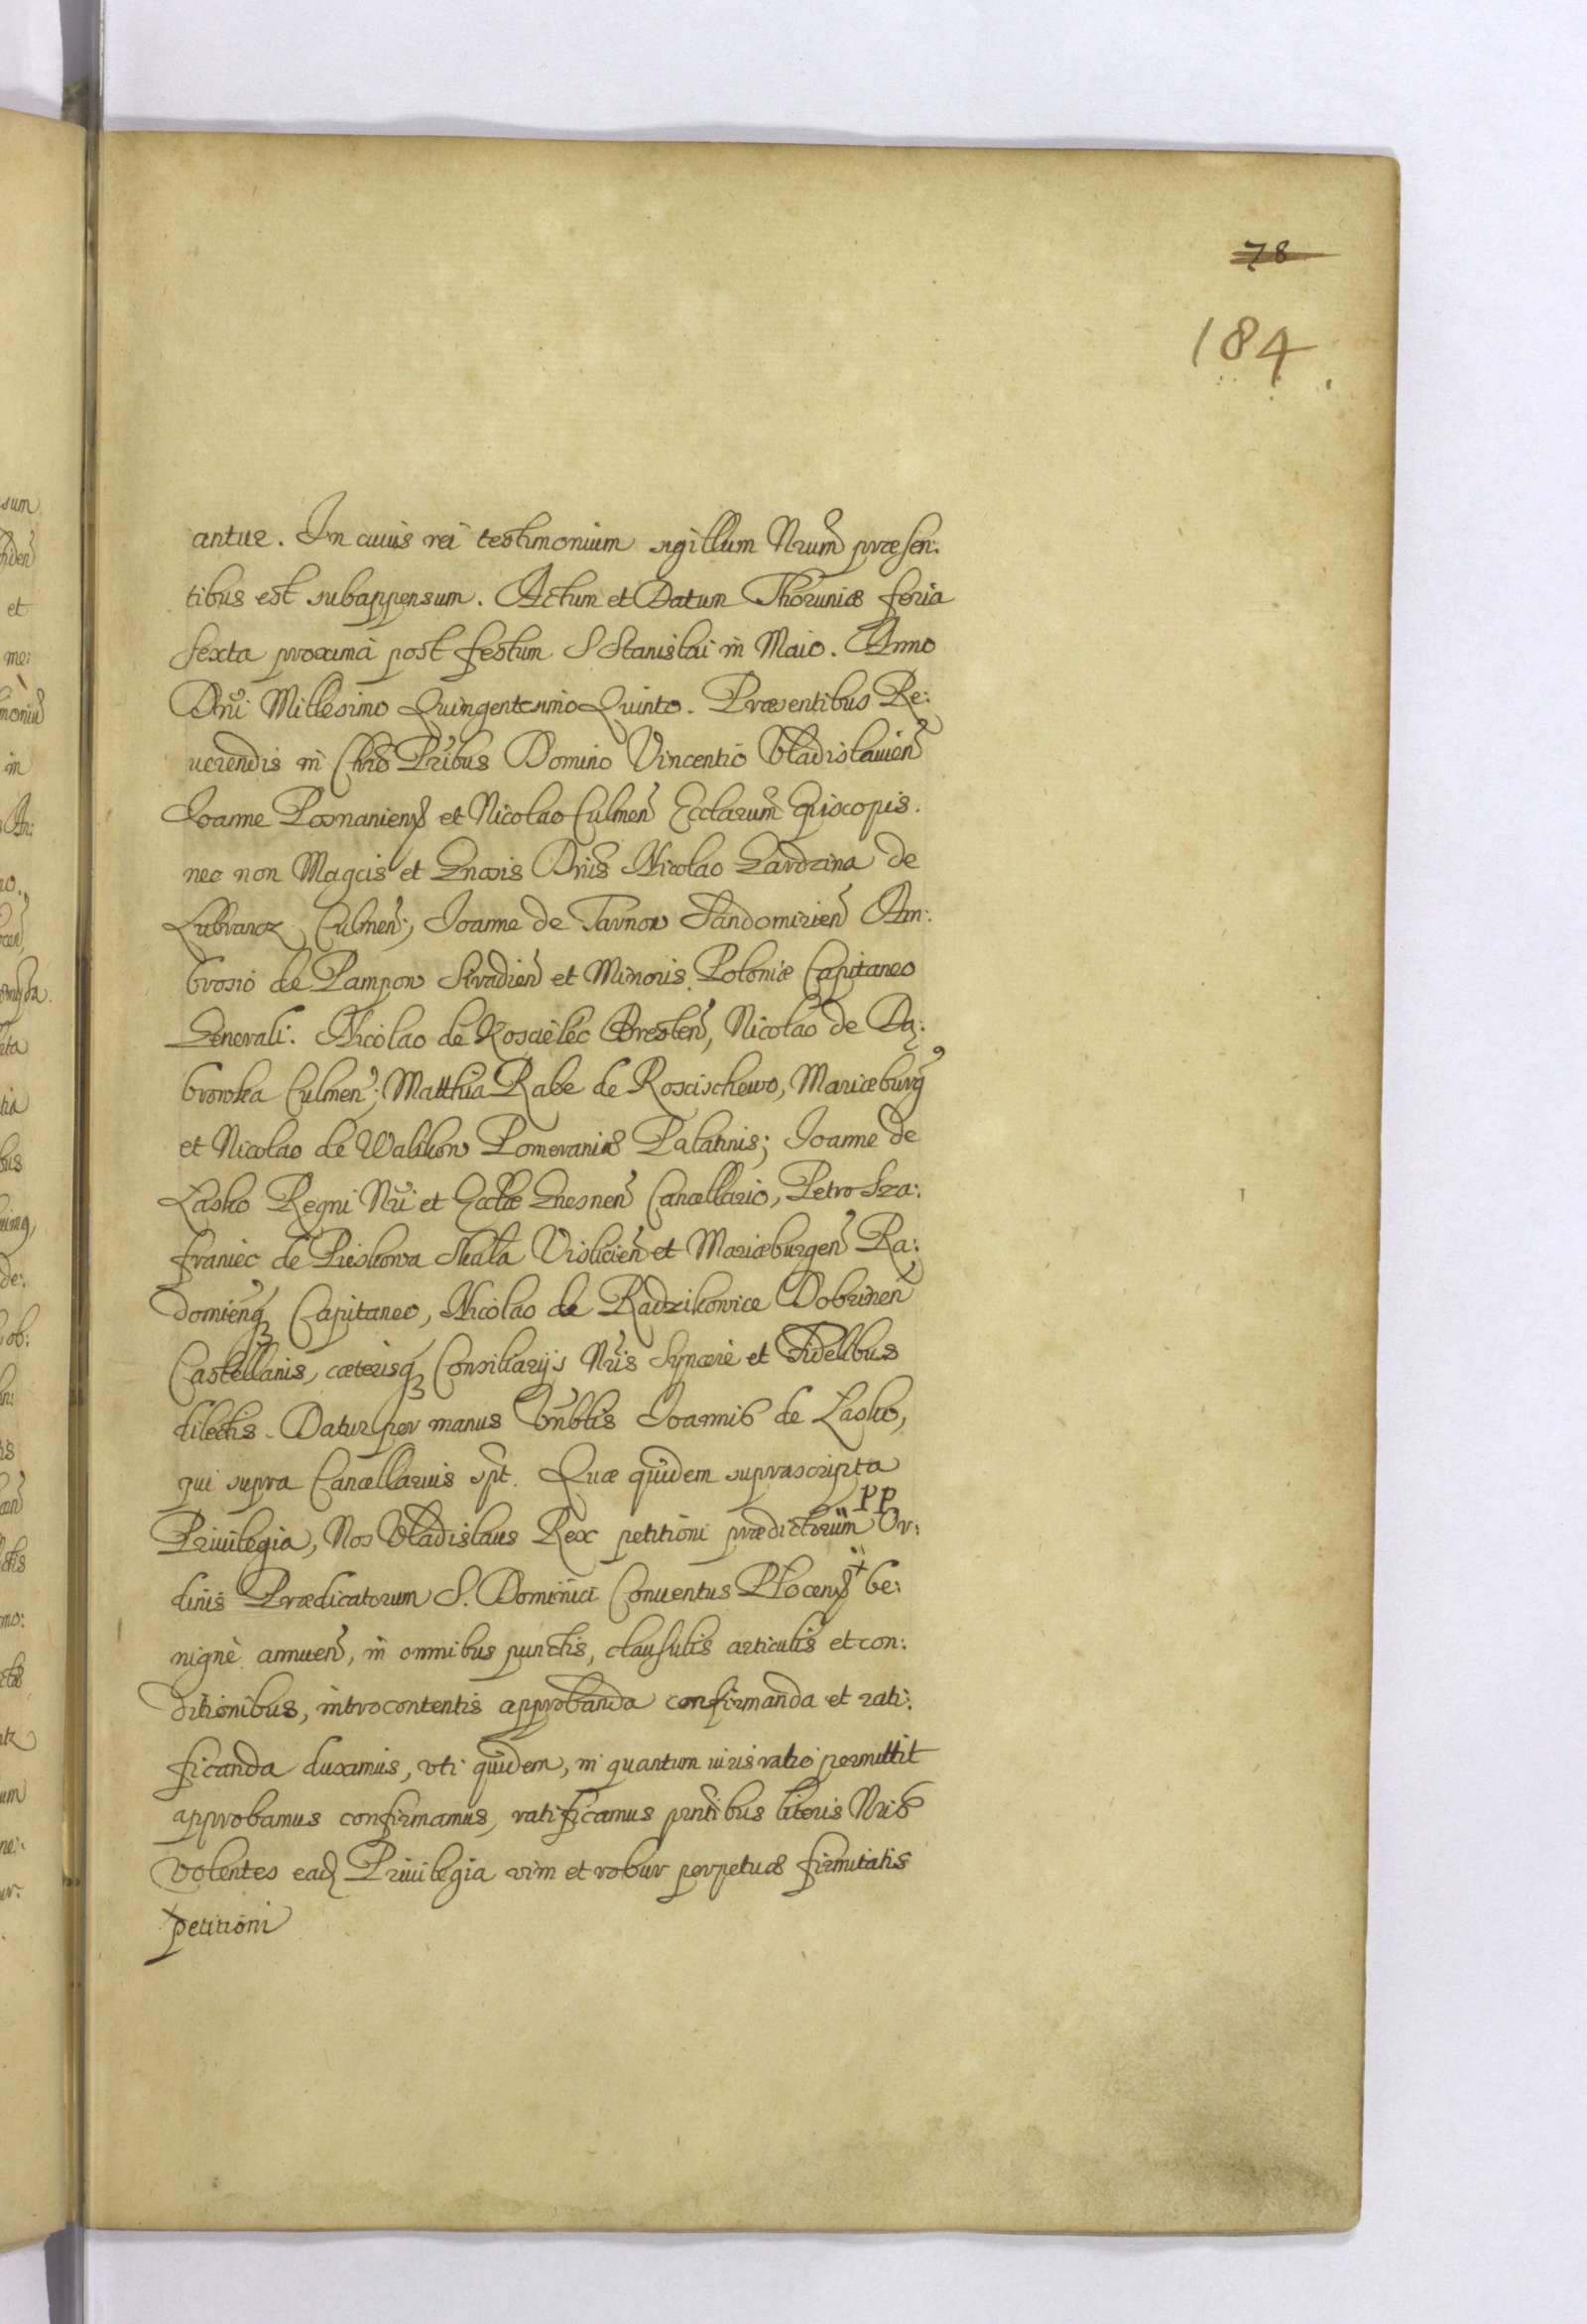 78
184
antur. In cuius rei testimonium sigillum Nrum præsen:
tibus est subappensum. Actum et Datum Thoruniæ feria
sexta proxima post festum S Stanislai in Maio. Anno
Dni Millesimo Quingentesimo Quinto. Præsentibus Re:
uerendis in Chro Pribus Domino Vincentio Vladislauien
Joanne Posnaniens et Nicolao Culmen Ecclarum Episcopis.
nec non Magcis et Gnosis Dnis Nicolao Gardzina de
Lubrancz Culmen; Joanne de Tarnow Sandomirien Am:
brosio de Pampow Siradien et Minoris Poloniæ Capitaneo
Generali. Nicolao de Koscielec Bresten, Nicolao de Dą:
browka Culmen; Matthia Rabe de Roscischewo, Mariæburg
et Nicolao de Walikow Pomeraniæ Palatinis; Joanne de
Lasko Regni Nri et Ecclæ Gnesnen Cancellario, Petro Sza:
franiec de Pieskowa Skała Vislicien et Mariæburgen Ra:
domienq Capitaneo, Nicolao de Radzikowice Dobrinen
Castellanis, cæterisq Consiliarijs Nris Syncere et Fidelibus
dilectis. Datur per manus Vnblis Joannis de Lasko,
qui supra Cancellarius spt. Quæ quidem suprascripta
PP
Priuilegia, Nos Vladislaus Rex petitioni prædictorum Or:
dinis Prædicatorum S. Dominici Conuentus Płocens + be:
nignè annuen, in omnibus punctis, clausulis articulis et con:
ditionibus, introcontentis approbanda confirmanda et rati:
ficanda duximus, vti quidem, in quantum iuris ratio permittit
approbamus confirmamus, ratificamus pntibus literis Nris
volentes ead Priuilegia vim et robur perpetuæ firmitatis
petitioni